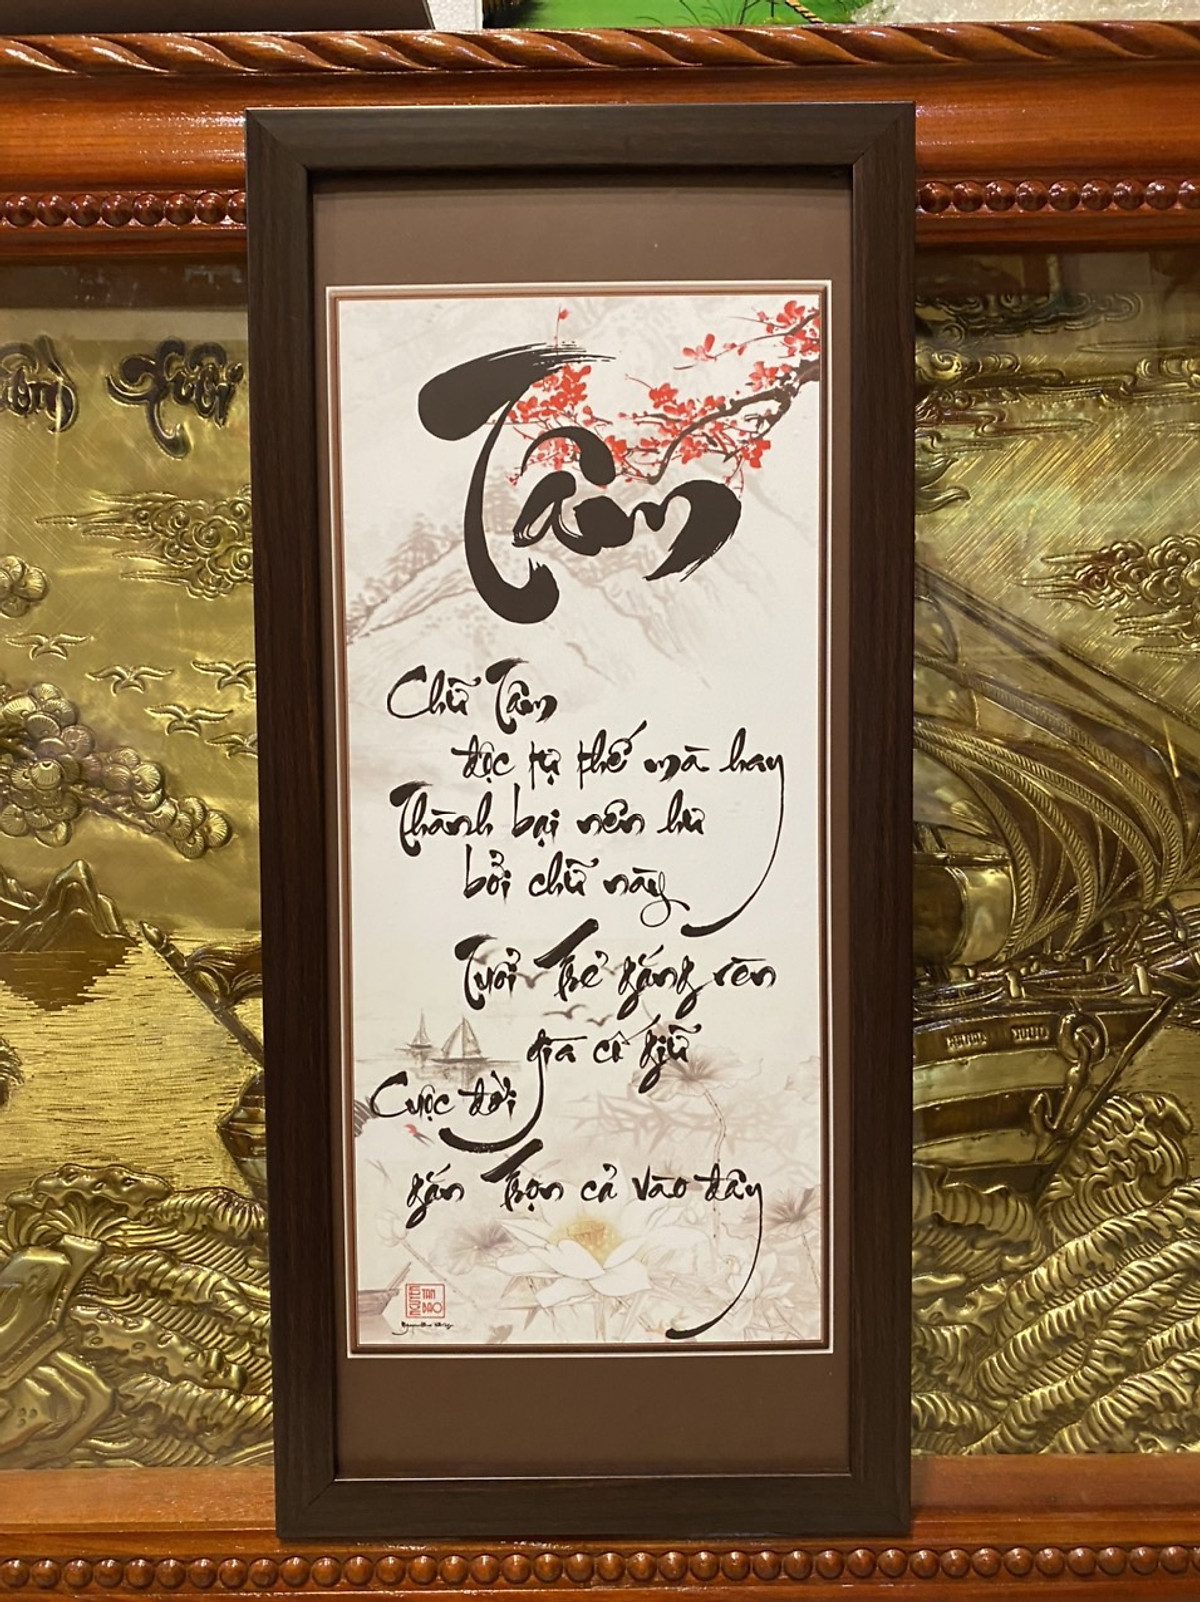 Tâm
Chữ Tâm
độc tự thế mà hay
Thành bại nên hư
bởi chữ này
Tuổi Trẻ gắng rèn
già cố giữ
Cuộc đời
gắn Trọn cả vào đây
NGUYEN
TAN
BAO